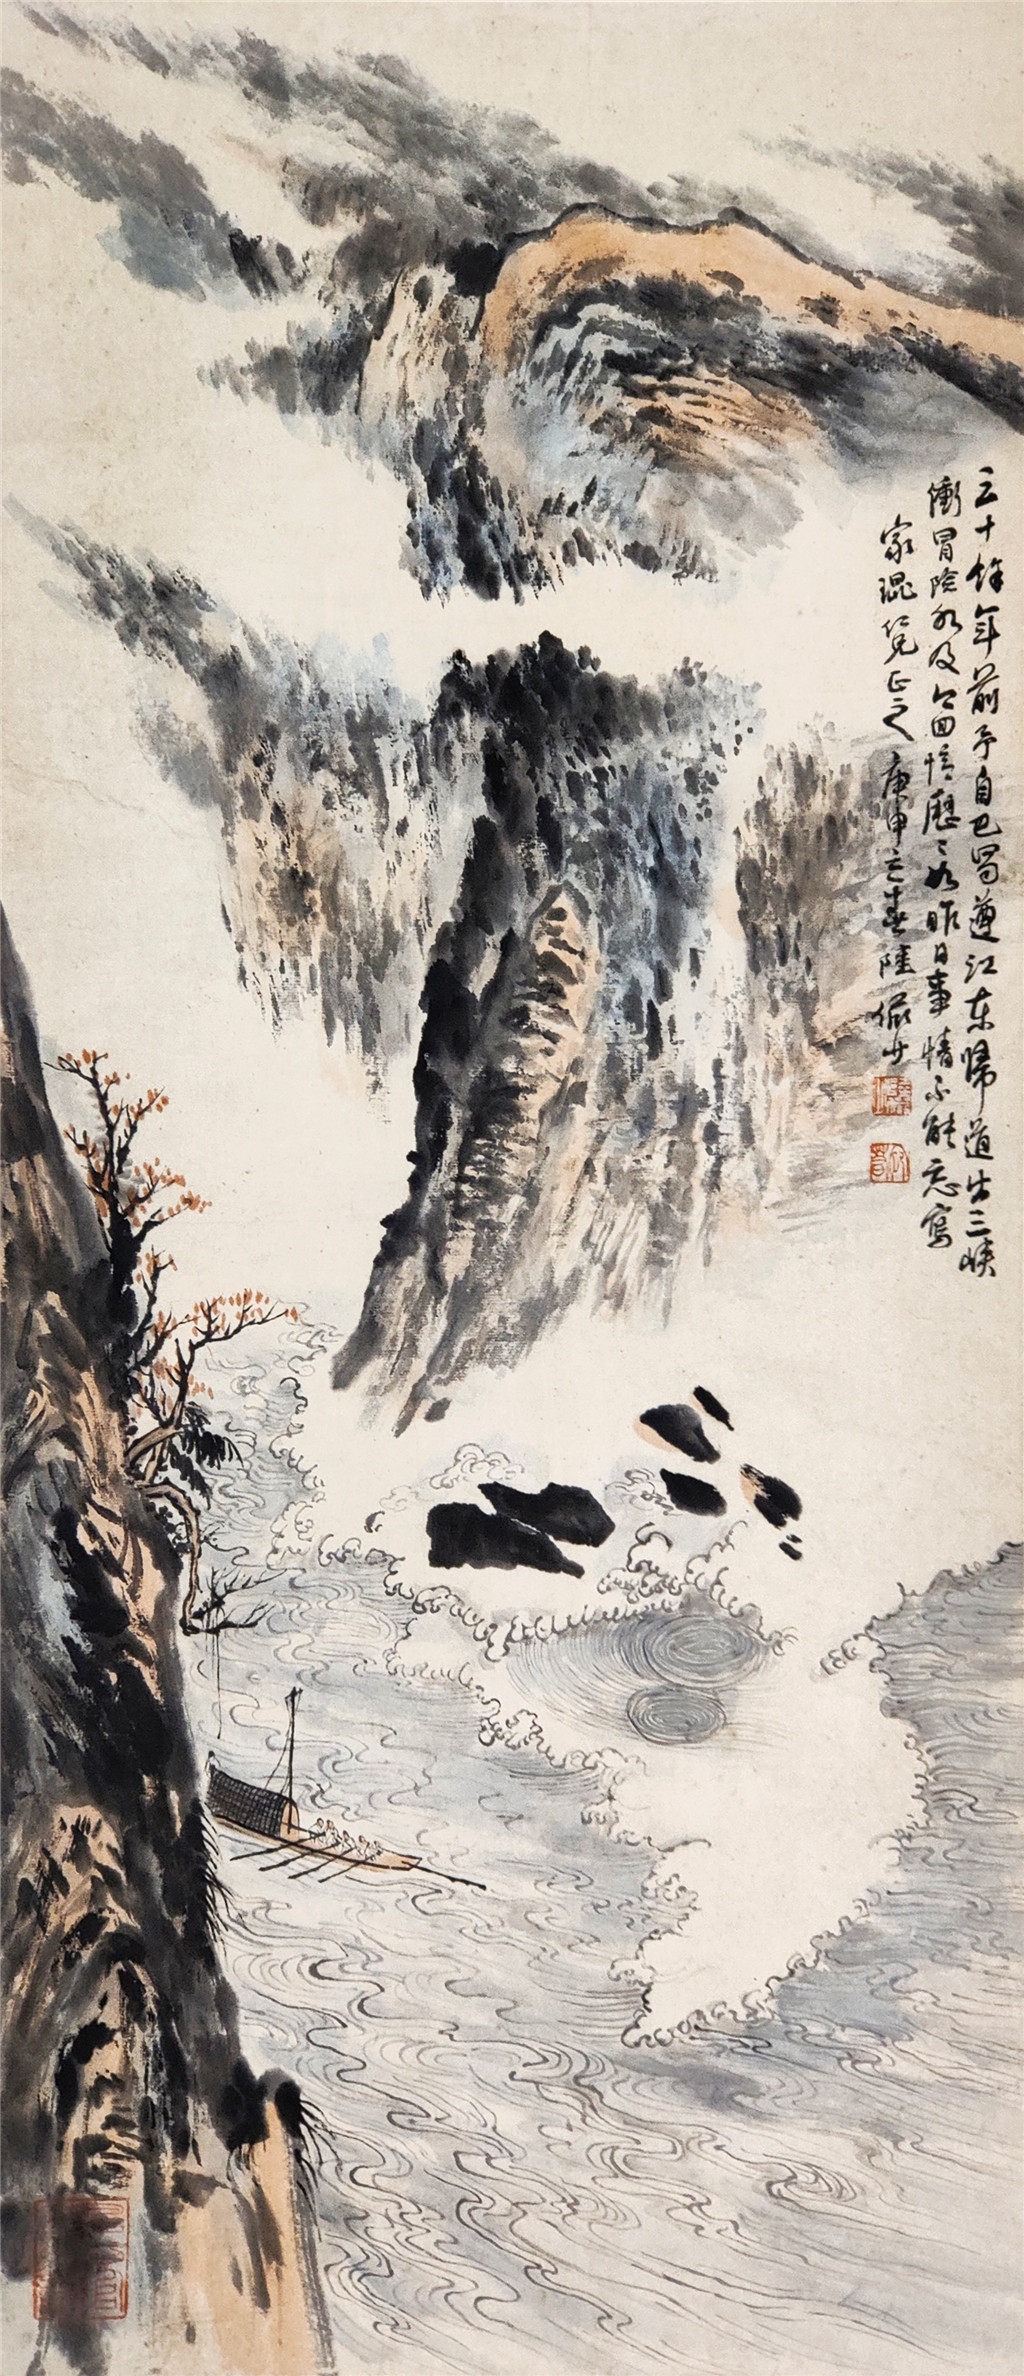 三十餘年前予自巴蜀遵江東歸道出三峽
衝冒險水及今回憶歷〻如昨日事情不能忘寫
家琨覽正之 庚申之春陸儼少